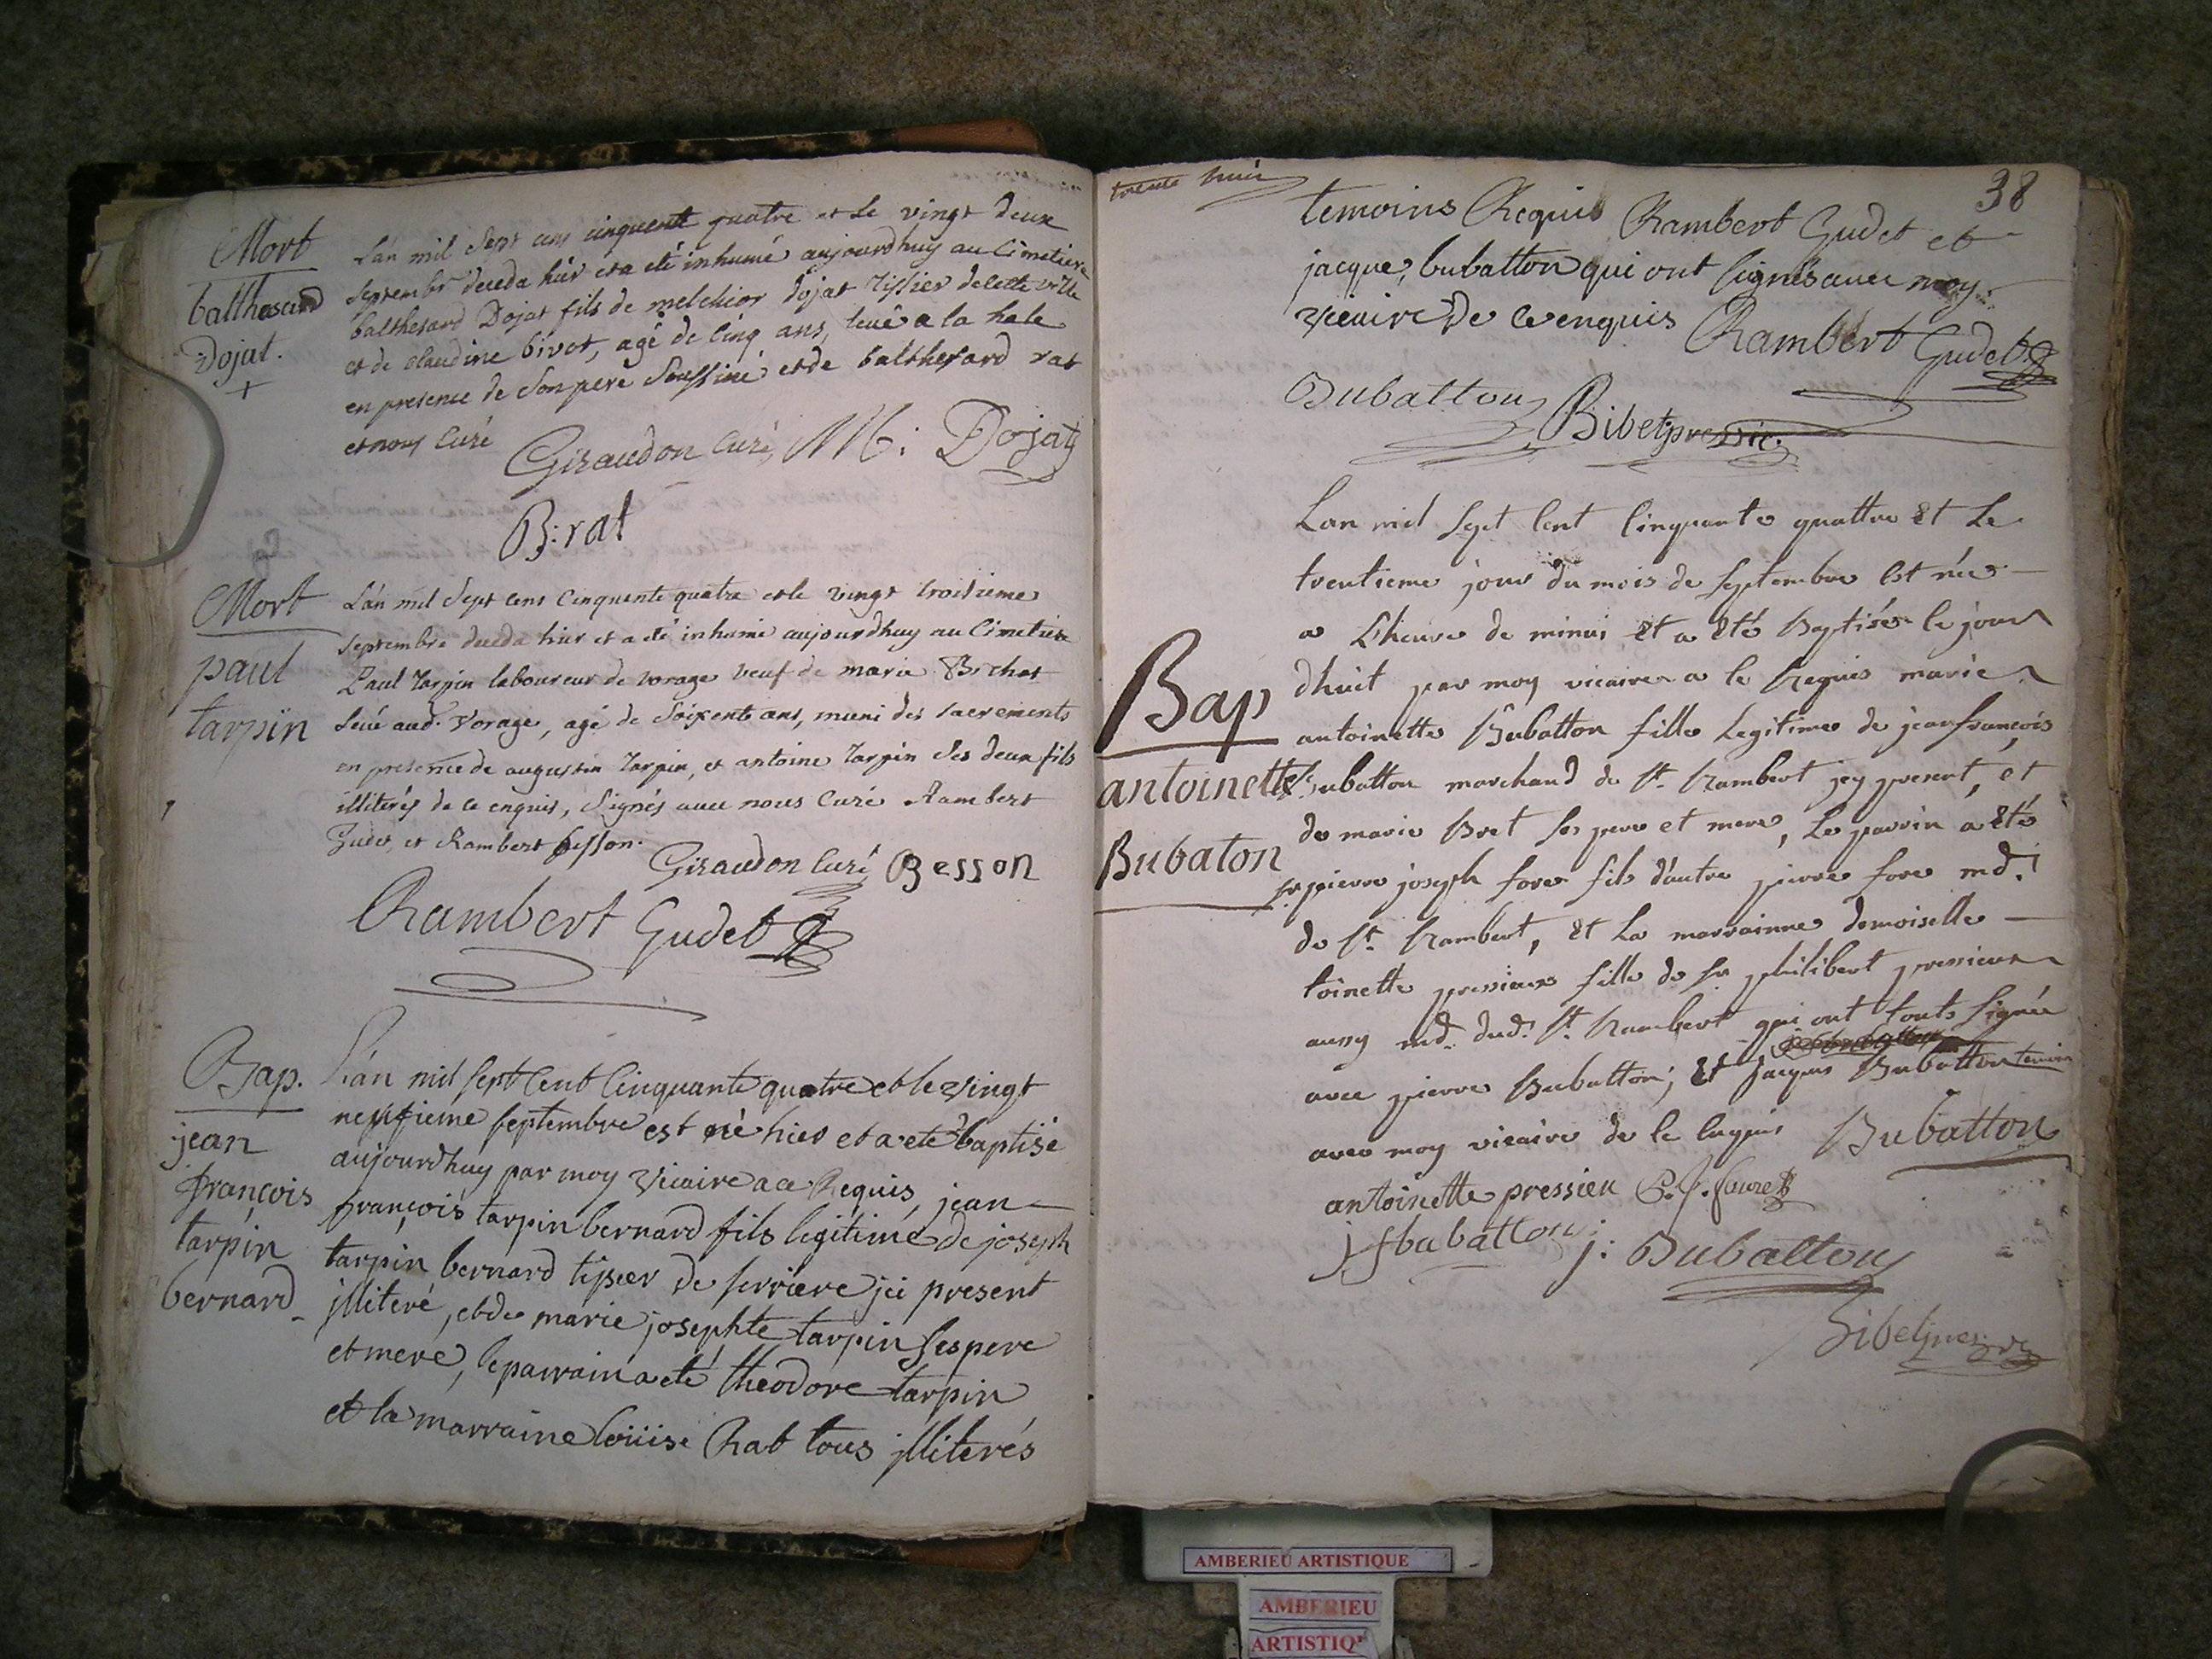 Mort
balthasard
Dojat.
+
L'an mil Sept cens cinquente quatre et le vingt deux
septembr deceda hier et a eté inhumé aujourdhuy au Cimetiere
balthesard Dojat fils de melchior Dojat Tissier de cette ville
et de claudine bivot, agé de cinq ans, levé a la hale
en presence de Son pere Soussiné et de balthesard rat
et nous Curé
Giraudon Curé M: Dojat
B: rat
Mort
paul
tarpin
L'an mil Sept cens Cinquente quatre et le vingt troisieme
septembre deceda hier et a eté inhumé aujourdhuy au Cimetiere
Paul Tarpin laboureur de vorage veuf de marie Brchat
levé aud. Vorage, agé de Soixente ans, muni des sacrements
en presence de augustin Tarpin, et antoine Tarpin Ses deux fils
illiterés de ce enquis, Signés avec nous Curé Rambert
Gudet, et Rambert besson.
Giraudon Curé Besson
Rambert Gudet
Bap.
jean
françois
tarpin
bernard
L'an mil sept Cent Cinquante quatre et le vingt
neufieme septembre est né hier et a eté baptisé
aujourdhuy par moy vicaire a ce Requis jean
françois tarpin bernard fils legitime de joseph
tarpin bernard tissier de serriere jci present
jlliteré, et de marie josephte tarpin ses pere
et mere, le parrain a eté theodore tarpin
et la marraine loüise Rat tous jlliterés
trente huit
38
temoins Requis Rambert Gudet et
jacque bubatton qui ont signés avec moy
vicaire de ce enquis Rambert Gudet
Bubatton
L'an mil sept Cent Cinquante quattre Et Le
trentieme jour du mois de septembre Est née
a L'heure de minui Et a Eté Baptisée le jour
d'huit par moy vicaire a ce Requis marie
antoinette Bubatton fille Legitime de jean françois
Bubatton marchand de St. Rambert jcy present, et
de marie Bret ses pere et mere, Le parrin a Eté
sr pierre joseph fore fils d'autre pierre fore md.
de St. Rambert, Et La marrainne demoiselle
toinette pressieux fille de sr philibert pressieux
aussy md. dud. St. Rambert qui ont touts signée
avec pierre Bubatton, Et Jacques Bubatton temoin
avec moy vicaire de ce Enquis Bubatton
Bap
antoinette
Bubaton
antoinette pressieu P. J. foure
jf bubatton j: Bubatton
AMBERIEU ARTISTIQUE
AMBERIEU
ARTISTIQ